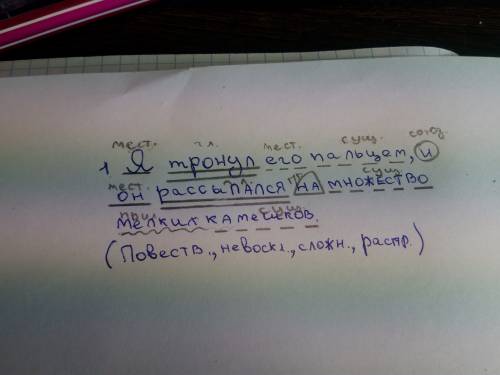 мест. гл. мест. сущ. союз.
1. Я тронул его пальцем, и
мест. гл. сущ.
он рассыпался на множество
прил. сущ.
мелких камешков.
(Повеств., невоскл., сложн., распр.)